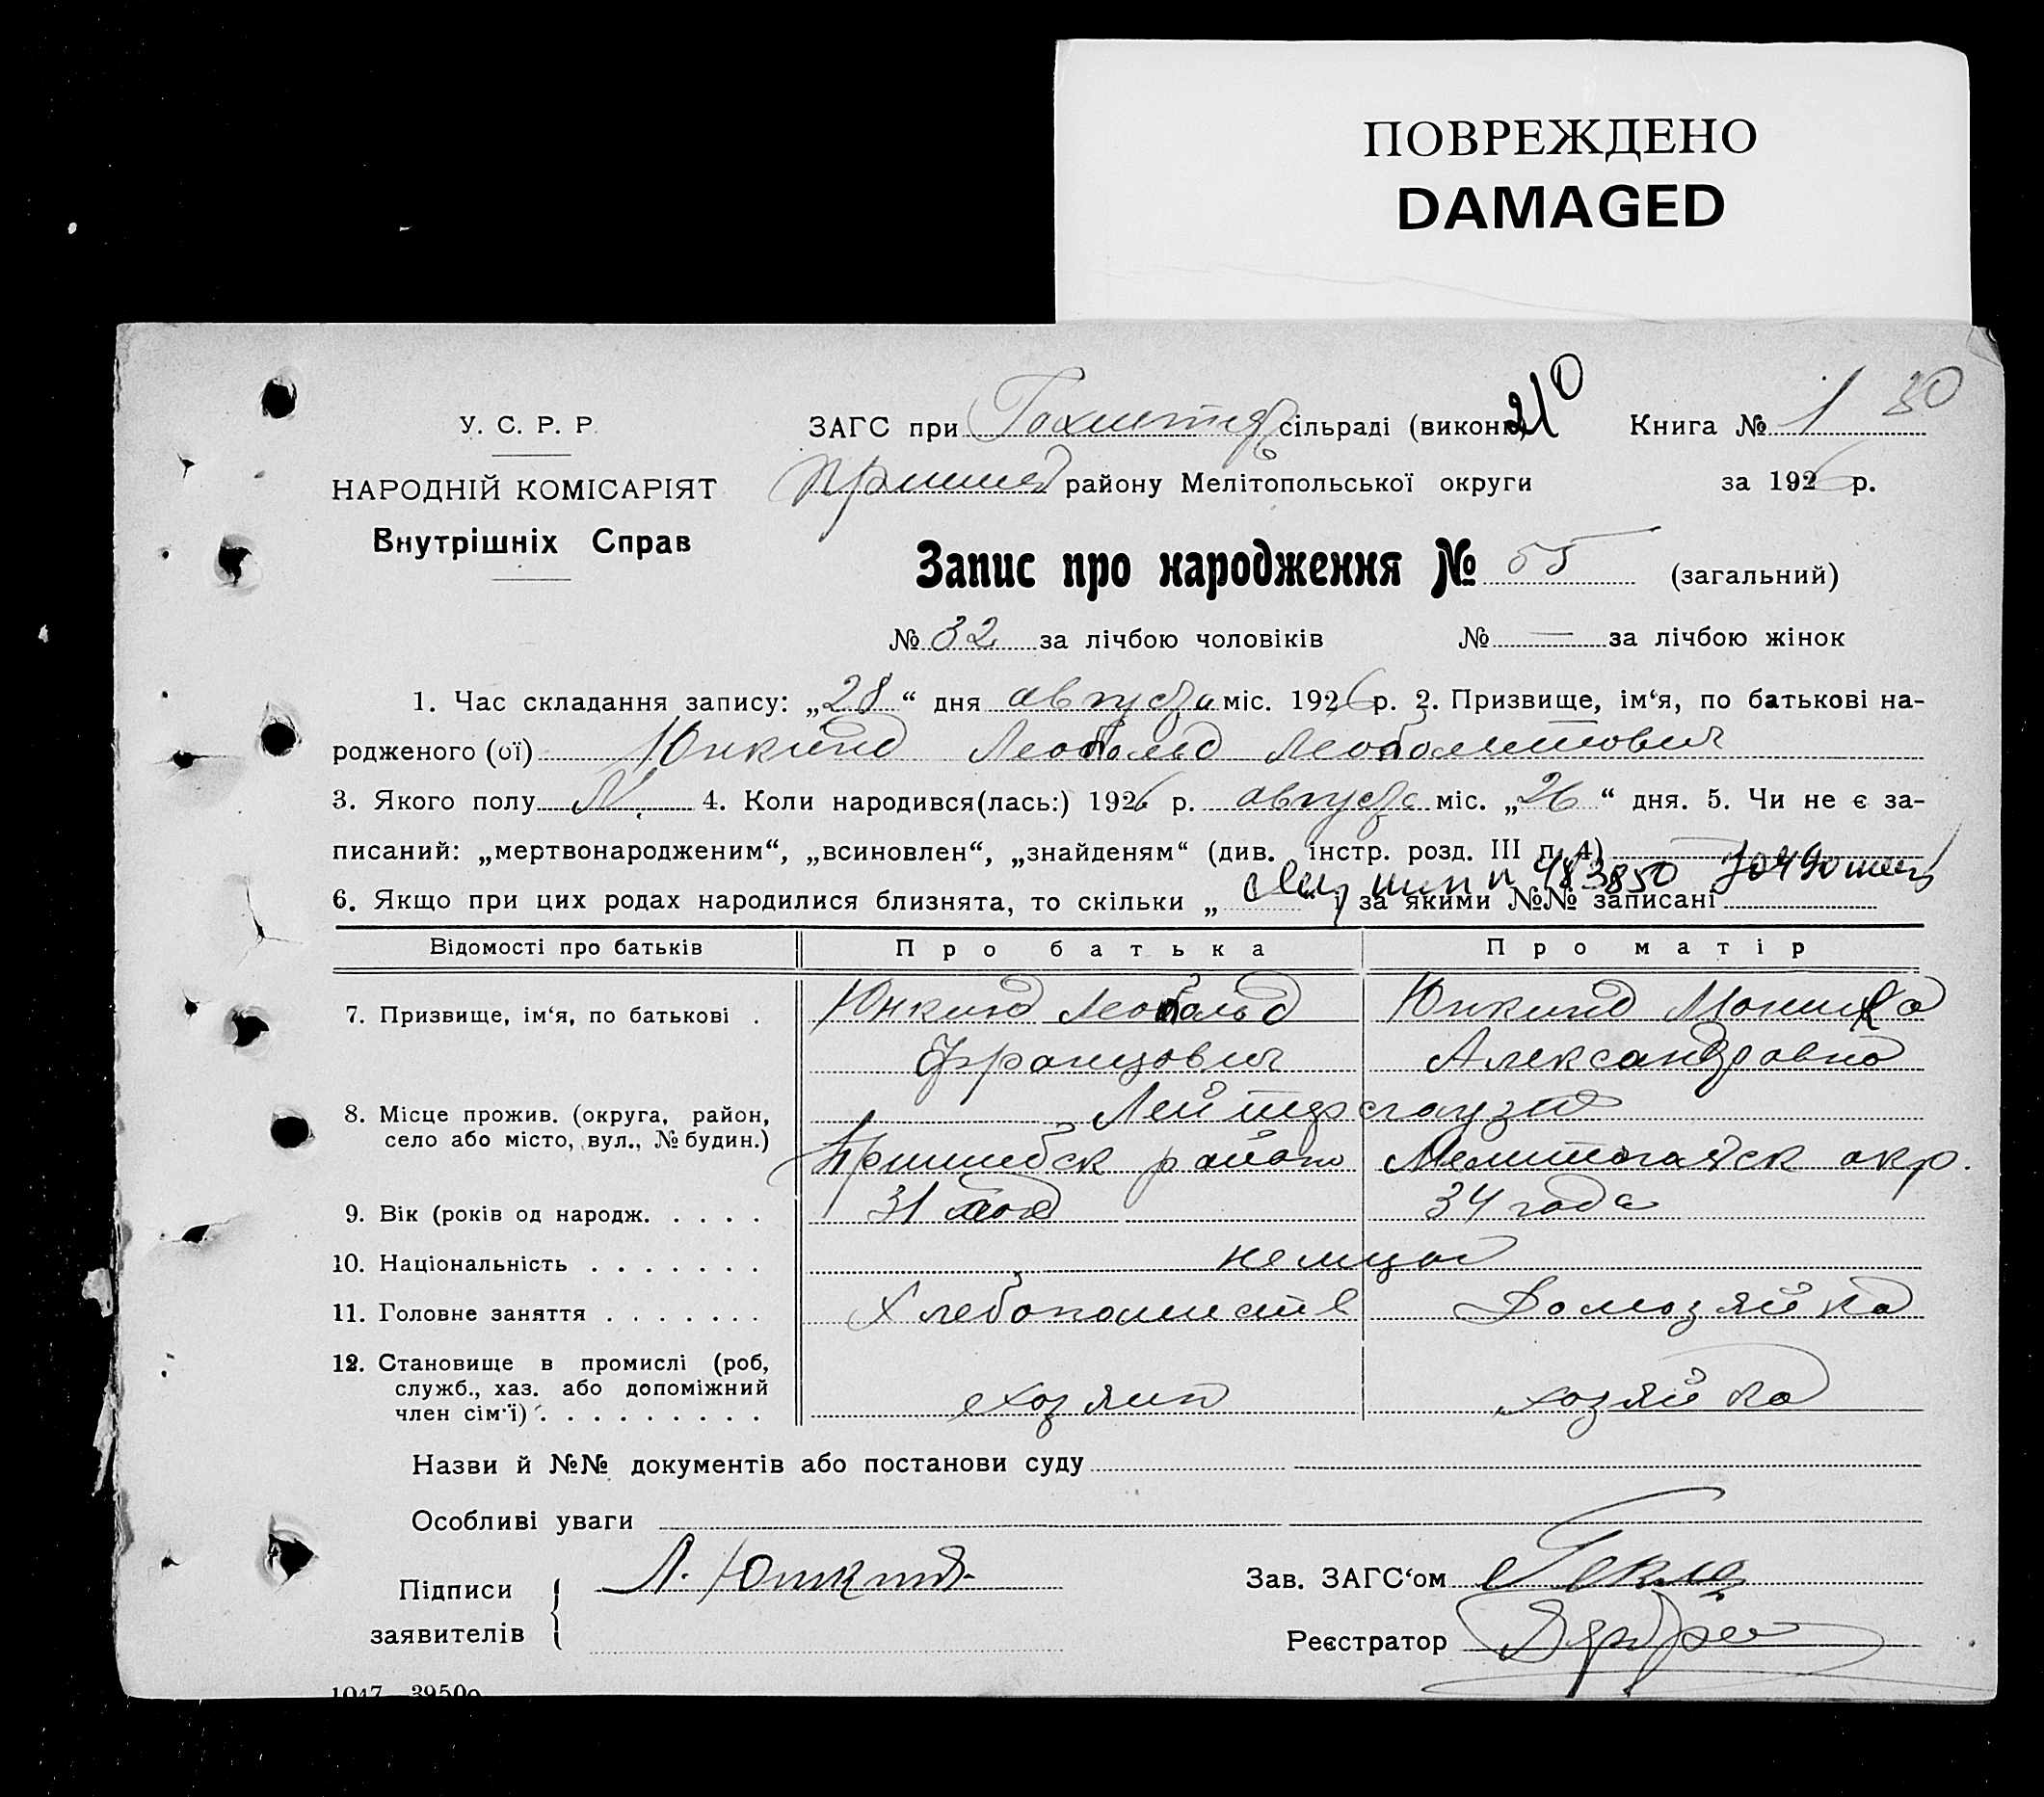 ПОВРЕЖДЕНО
DAMAGED
У. С. Р. Р. ЗАГС при Гохштед сільраді (виконк) 210 Книга № 1 30
НАРОДНІЙ КОМІСАРІЯТ Пришиб району Мелітопольської округи за 1926 р.
Внутрішніх Справ
Запис про народження № 55 (загальний)
№ 32 за лічбою чоловіків № — за лічбою жінок
1. Час складання запису: „28“ дня августа міс. 1926 р. 2. Призвище, ім‘я, по батькові на-
родженого (ої) Юнкинд Леопольд Леопольдович
3. Якого полу М. 4. Коли народився(лась:) 1926 р. августа міс. „26“ дня. 5. Чи не є за-
писаний: „мертвонародженим“, „всиновлен“, „знайденям“ (див. інстр. розд. III п. 4) —
483850
6. Якщо при цих родах народилися близнята, то скільки „ “ і за якими №№ записані
Відомості про батьків Про батька Про матір
7. Призвище, ім‘я, по батькові . Юнкинд Леопольд Юнкинд Моника
Францович Александровна
8. Місце прожив. (округа, район, Лейтерсгаузен
село або місто, вул., № будин.) Пришибск района Мелитопольск окр.
9. Вік (років од народж. . . . . 31 год 34 года
10. Національність . . . . . . . немцы
11. Головне заняття . . . . . . . Хлебопашест. Домозяйка
12. Становище в промислі (роб,
служб., хаз. або допоміжний хозяин хозяйка
член сім‘ї) . . . . . . . . .
Назви й №№ документів або постанови суду
Особливі уваги
Підписи Л. Юнкинд. Зав. ЗАГС‘ом
заявителів Реєстратор
1047—39500